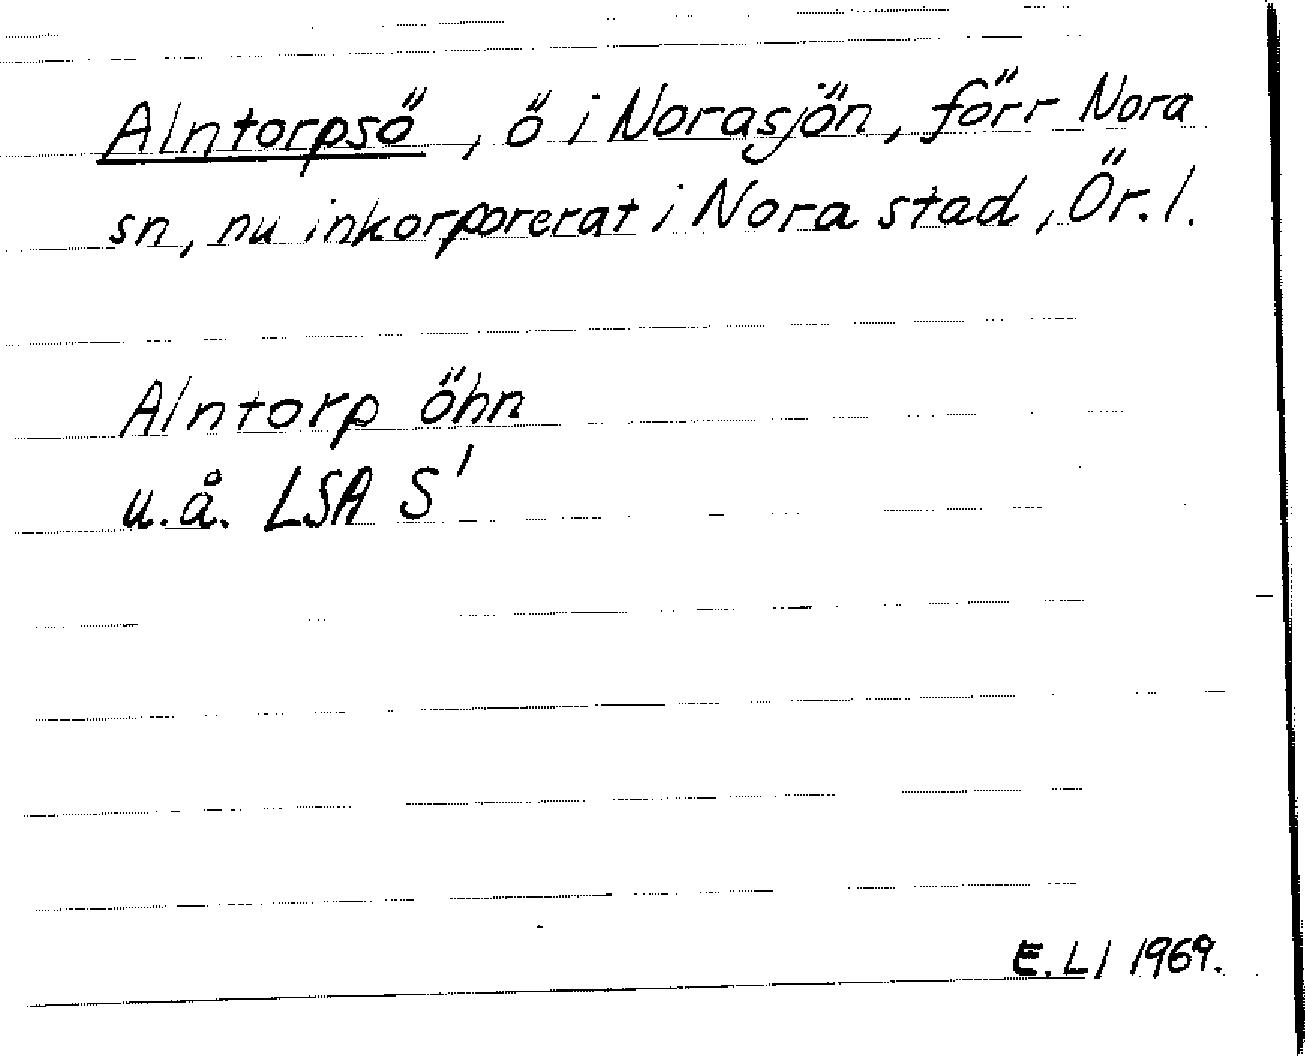 Alntorpsö, ö i Norasjön, förr Nora
sn, nu inkorporerat i Nora stad, Ör. l.
Alntorp öhn
u.å. LSA S'
E. Ll 1969.